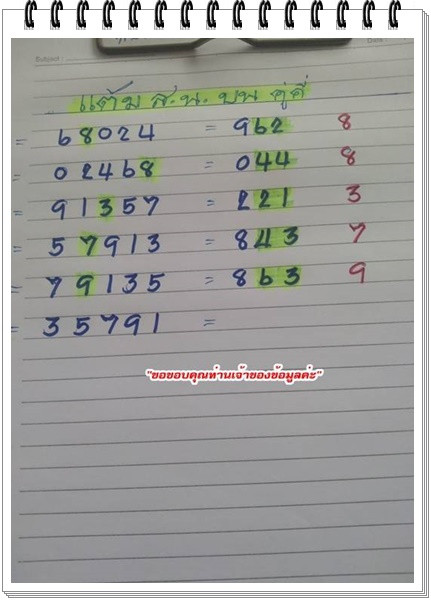 Subject
Date
แต้ม ส.น. บน คู่คี่
= 68024 = 962 8
= 02468 = 044 8
= 91357 = 221 3
= 57913 = 843 7
= 79135 = 863 9
= 35791 =
"ขอขอบคุณท่านเจ้าของข้อมูลค่ะ"